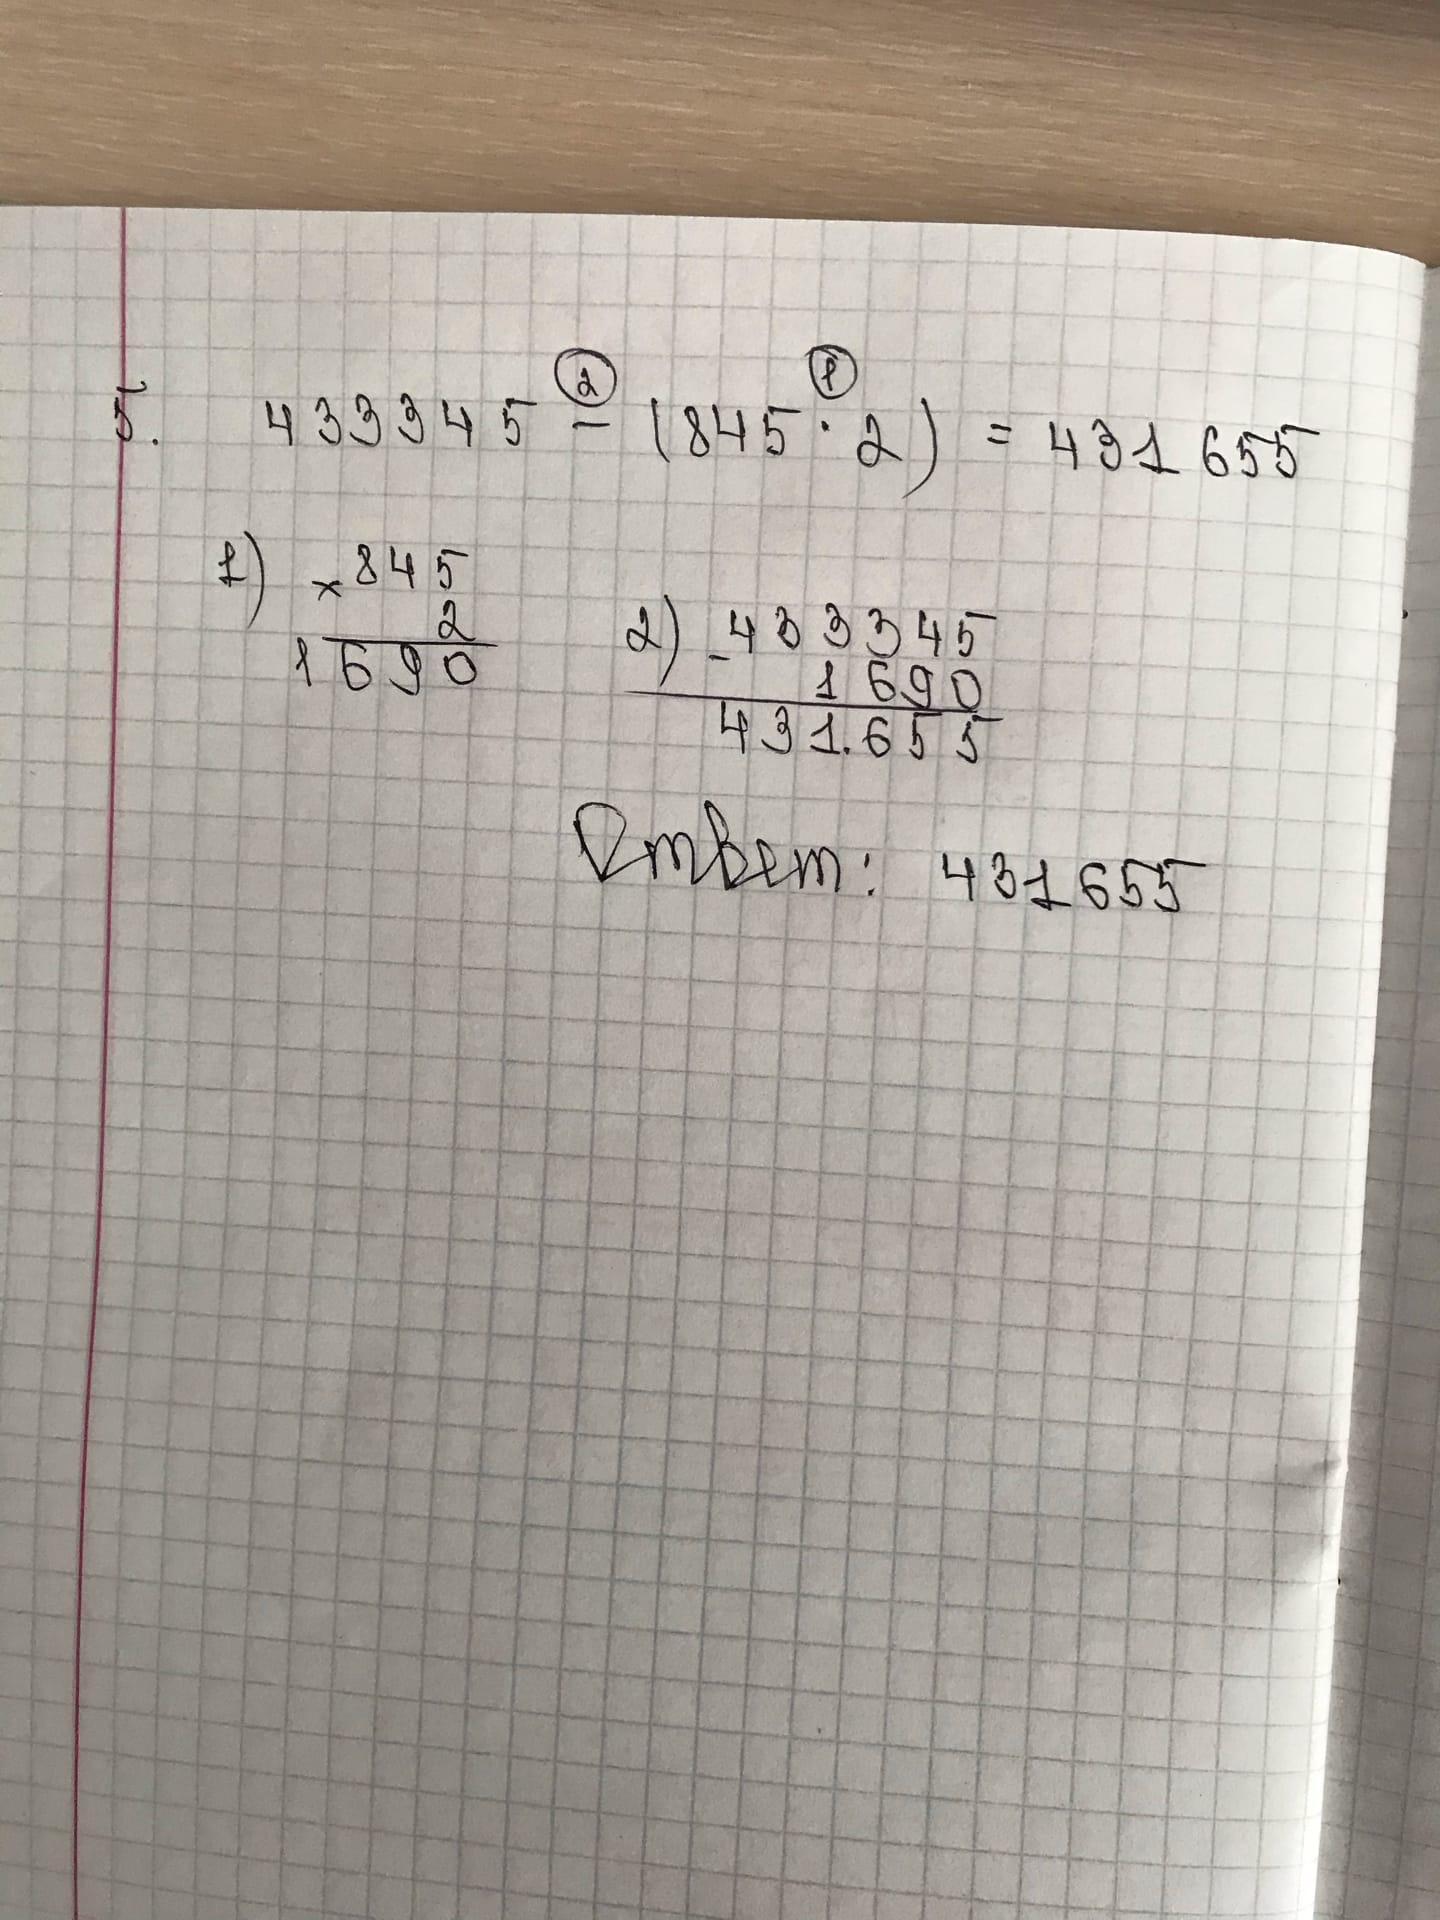 5. 433345 - (845 · 2) = 431655
② ①
1) × 845
2
1690
2) - 433345
1690
431.655
Ответ: 431655